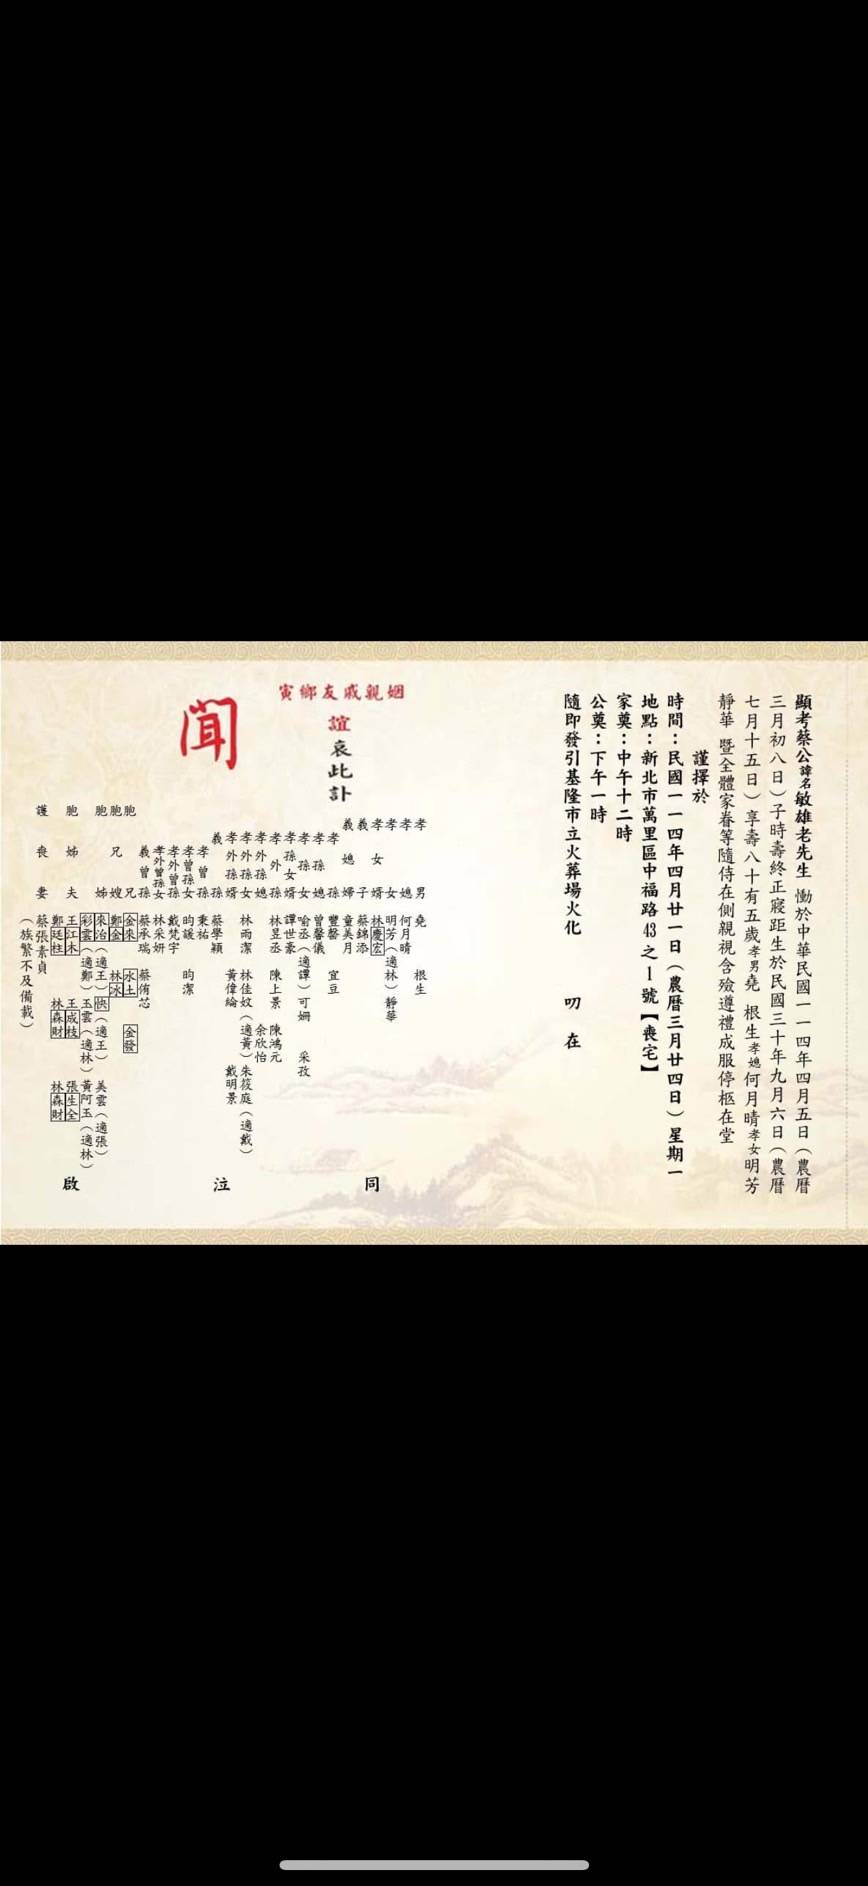 顯考蔡公諱名敏雄老先生 慟於中華民國一一四年四月五日（農曆
三月初八日）子時壽終正寢距生於民國三十年九月六日（農曆
七月十五日）享壽八十有五歲孝男堯 根生孝媳何月晴孝女明芳
靜華 暨全體家眷等隨侍在側親視含殮遵禮成服停柩在堂
謹擇於
時間：民國一一四年四月廿一日（農曆三月廿四日）星期一
地點：新北市萬里區中福路43之1號【喪宅】
家奠：中午十二時
公奠：下午一時
隨即發引基隆市立火葬場火化 叨 在
姻親戚友鄉寅
誼哀此訃
聞
孝男 堯 根生
孝媳 何月晴
孝女 明芳（適林）靜華
孝女婿 林慶宏
義子 蔡錦添
義媳婦 童美月
孝孫 豐馨 宜豆
孝孫媳 曾馨儀
孝孫女 喻丞（適譚）可姍 采孜
孝孫女婿 譚世豪
孝外孫 林昱丞 陳上景 陳鴻元
孝外孫媳 余欣怡
孝外孫女 林雨潔 林佳妏（適黃）朱筱庭（適戴）
孝外孫婿 黃偉綸 戴明景
義孫 蔡學穎
孝曾孫 秉祐
孝曾孫女 昀諼 昀潔
孝外曾孫 戴梵宇
孝外曾孫女 林采妍
義曾孫 蔡承瑞 蔡侑芯
胞兄 金來 水土 金發
胞兄嫂 鄭金 林冰
胞姊 來治（適王）快（適王）美雲（適張）
彩雲（適鄭）玉雲（適林）黃阿玉（適林）
胞姊夫 王江木 王成枝 張生全
鄭廷柱 林森財 林森財
護喪妻 蔡張素貞
（族繁不及備載）
同 泣 啟